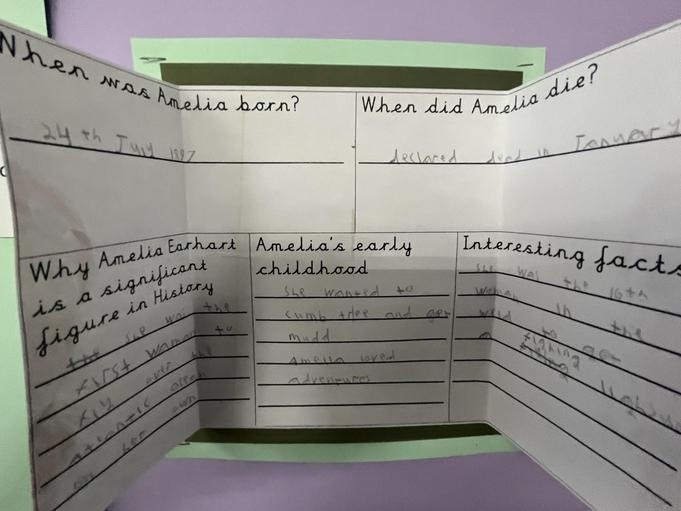 When was Amelia born?
24th July 1897
When did Amelia die?
declared dead in January
Why Amelia Earhart
is a significant
figure in History
the she was the
first woman to
fly over the
atlantic ocean
on her own
Amelia's early
childhood
She wanted to
cumb tree and get
mudd
Amelia loved
adventures
Interesting facts
She was the 16th
woman in the
wrld to get
a fighing